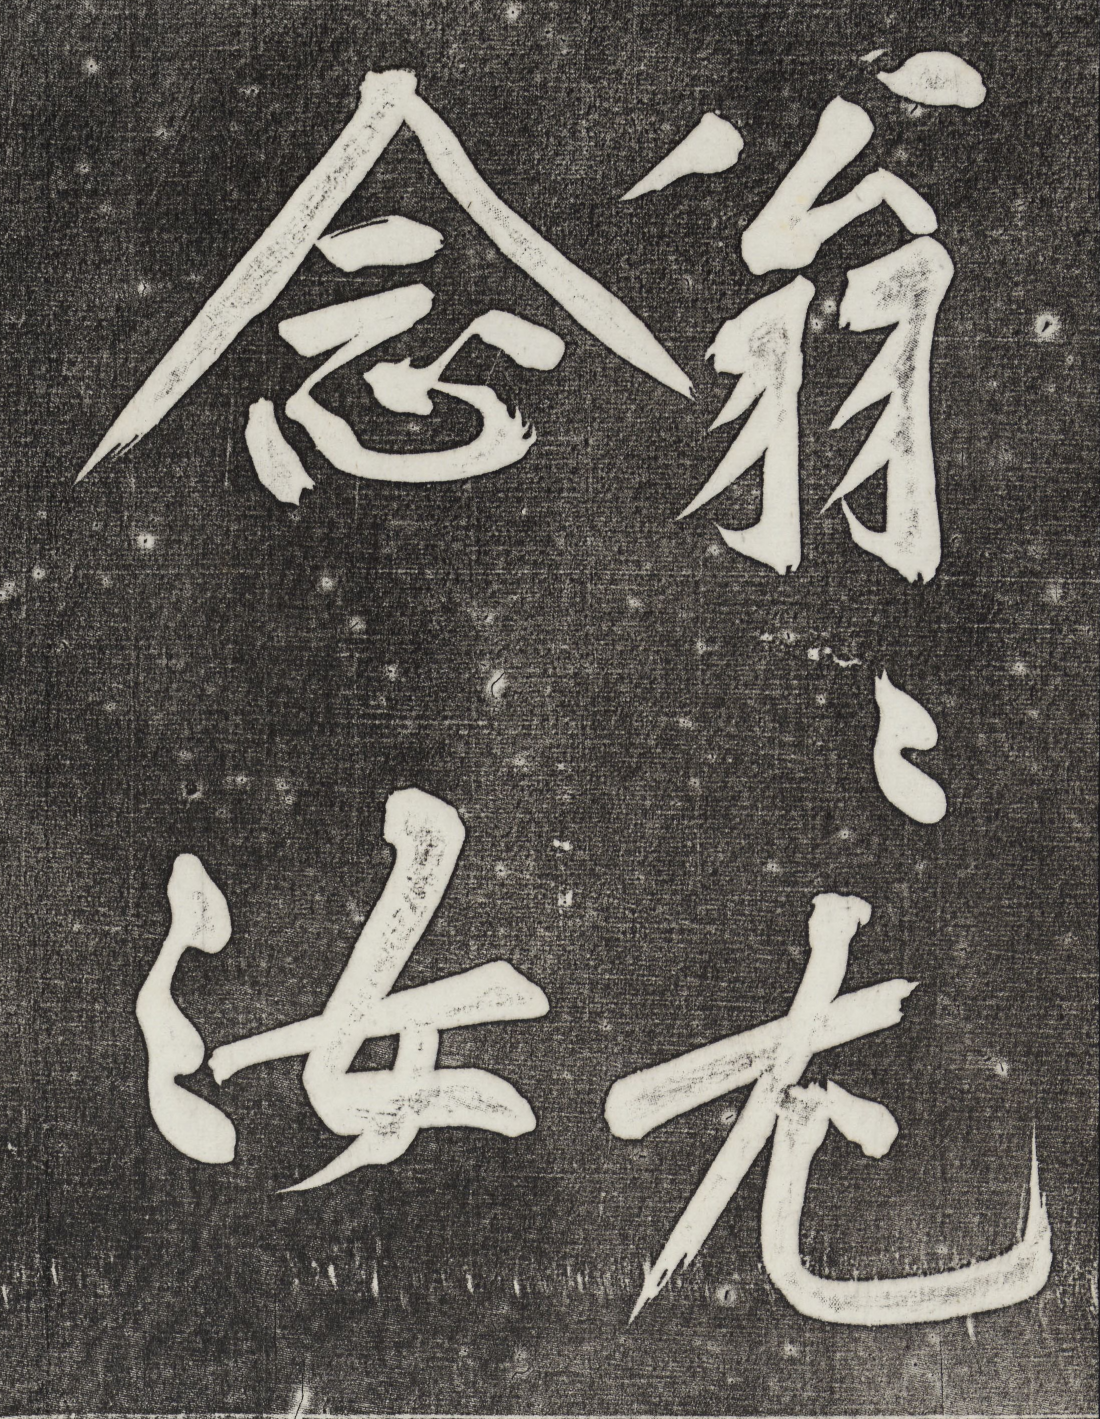 翁〻尤
念汝